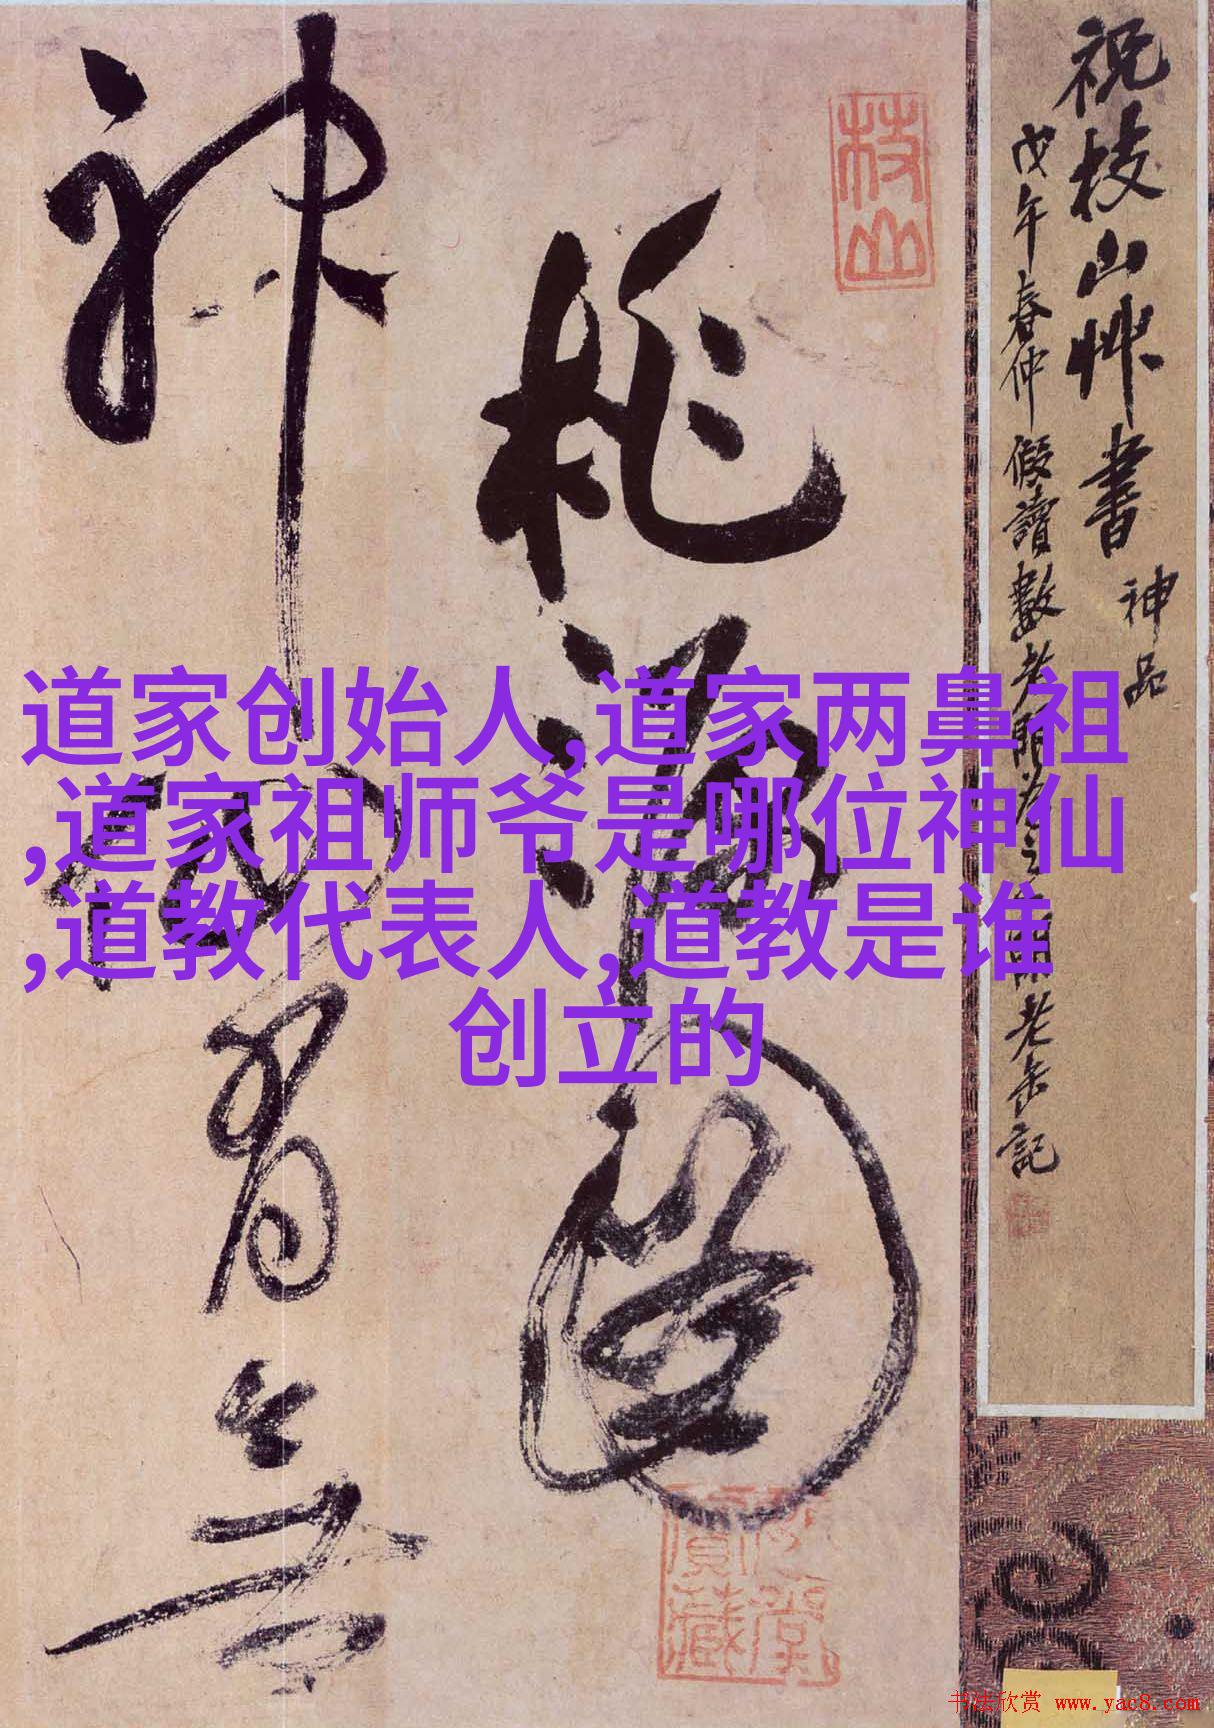 祝枝山艸書
神品
戊午春仲假讀數
老缶記
枝山
桃源圖
神仙有無
道家创始人,道家两鼻祖
,道家祖师爷是哪位神仙
,道教代表人,道教是谁
创立的
書法欣赏 www.yac8.com